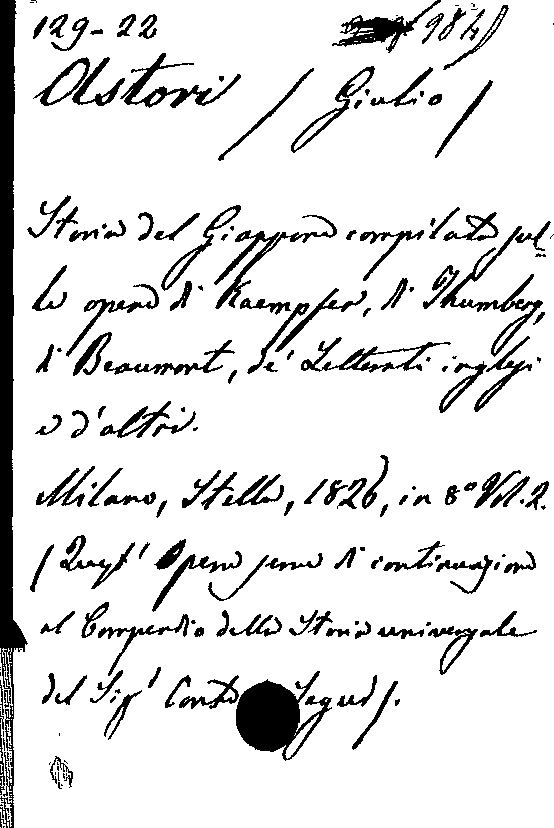 129-22 984)
Astori / Giulio /
Storia del Giappone compilata sul-
le opere di Kaempfer, di Thumberg,
di Beaumont, de' Letterati inglesi
e d'altri.
Milano, Stella, 1826, in 8° Vol. 2.
/ Quest' Opera serve di continuazione
al Compendio della Storia universale
del Sig.r Conte Segur /.